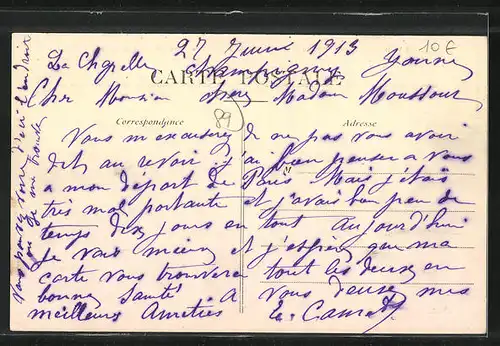 La Chapelle 27 Juin 1913 Yonne
Champigny
10€
CARTE POSTALE
Cher Monsieur cher Madam Moussour
89
Correspondance Adresse
Vous mexcuserez de ne pas vous avoir
dit au revoir j'ai bien penser a vous
a mon départ de Paris Mais j'etais
très mal portante et j'avais bien peu de
temps dix jours en tout aujourd'hui
je vais mieux et j'espère que ma
carte vous trouvera tout les deux en
bonne santé vous deux mes
meilleurs Amitiés A
Vous pouvez voir d'ici l'endroit
ou je me trouve